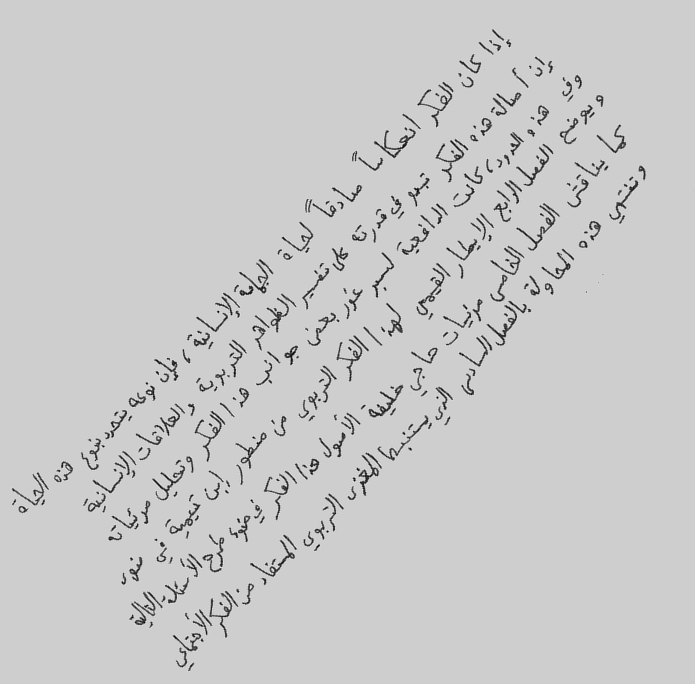 إذا كان الفكر انعكاساً صادقاً لحياة الجماعة الإنسانية، فإن نوعه يتحدد بنوع هذه الحياة
إن أصالة هذه الفكر تبدو في قدرته على تفسير الظواهر التربوية والعلاقات الإنسانية
وفي هذه الحدود، كانت الدافعية لسبر غور بعض جوانب هذا الفكر وتحليل مرئياته
ويوضح الفصل الرابع الإيطار القيمي لهذا الفكر التربوي من منطور إبن تيمية في ضوء
كما يناقش الفصل الخامس مرئيات حاجي خليفة لأصول هذا الفكر في ضوء طرح الأسئلة التالية
وتنتهي هذه المحاولة بالفصل السادس الذي يستنبط المغزى التربوي المستفاد من الفكر الأجتماعي